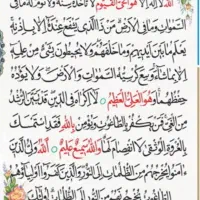 اللَّهُ لَا إِلَهَ إِلَّا هُوَ الْحَيُّ الْقَيُّومُ لَا تَأْخُذُهُ سِنَةٌ وَلَا نَوْمٌ لَهُ مَا فِي
السَّمَوَاتِ وَمَا فِي الْأَرْضِ مَنْ ذَا الَّذِي يَشْفَعُ عِنْدَهُ إِلَّا بِإِذْنِهِ
يَعْلَمُ مَا بَيْنَ أَيْدِيهِمْ وَمَا خَلْفَهُمْ وَلَا يُحِيطُونَ بِشَيْءٍ مِنْ عِلْمِهِ
إِلَّا بِمَا شَاءَ وَسِعَ كُرْسِيُّهُ السَّمَوَاتِ وَالْأَرْضَ وَلَا يَئُودُهُ
حِفْظُهُمَا وَهُوَ الْعَلِيُّ الْعَظِيمُ لَا إِكْرَاهَ فِي الدِّينِ قَدْ تَبَيَّنَ الرُّشْدُ
مِنَ الْغَيِّ فَمَنْ يَكْفُرْ بِالطَّاغُوتِ وَيُؤْمِنْ بِاللَّهِ فَقَدِ اسْتَمْسَكَ
بِالْعُرْوَةِ الْوُثْقَى لَا انْفِصَامَ لَهَا وَاللَّهُ سَمِيعٌ عَلِيمٌ اللَّهُ وَلِيُّ الَّذِينَ
آمَنُوا يُخْرِجُهُمْ مِنَ الظُّلُمَاتِ إِلَى النُّورِ وَالَّذِينَ كَفَرُوا أَوْلِيَاؤُهُمُ